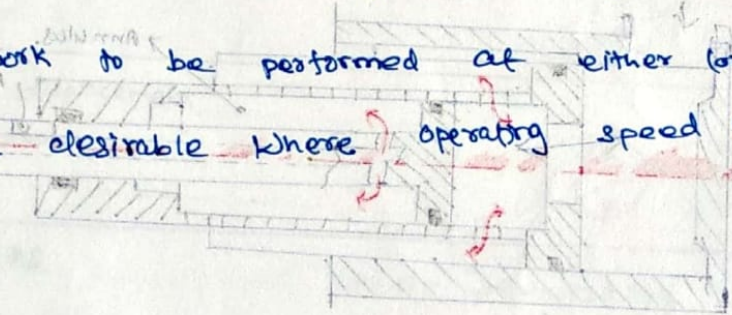 work to be performed at either
desirable where operating speed